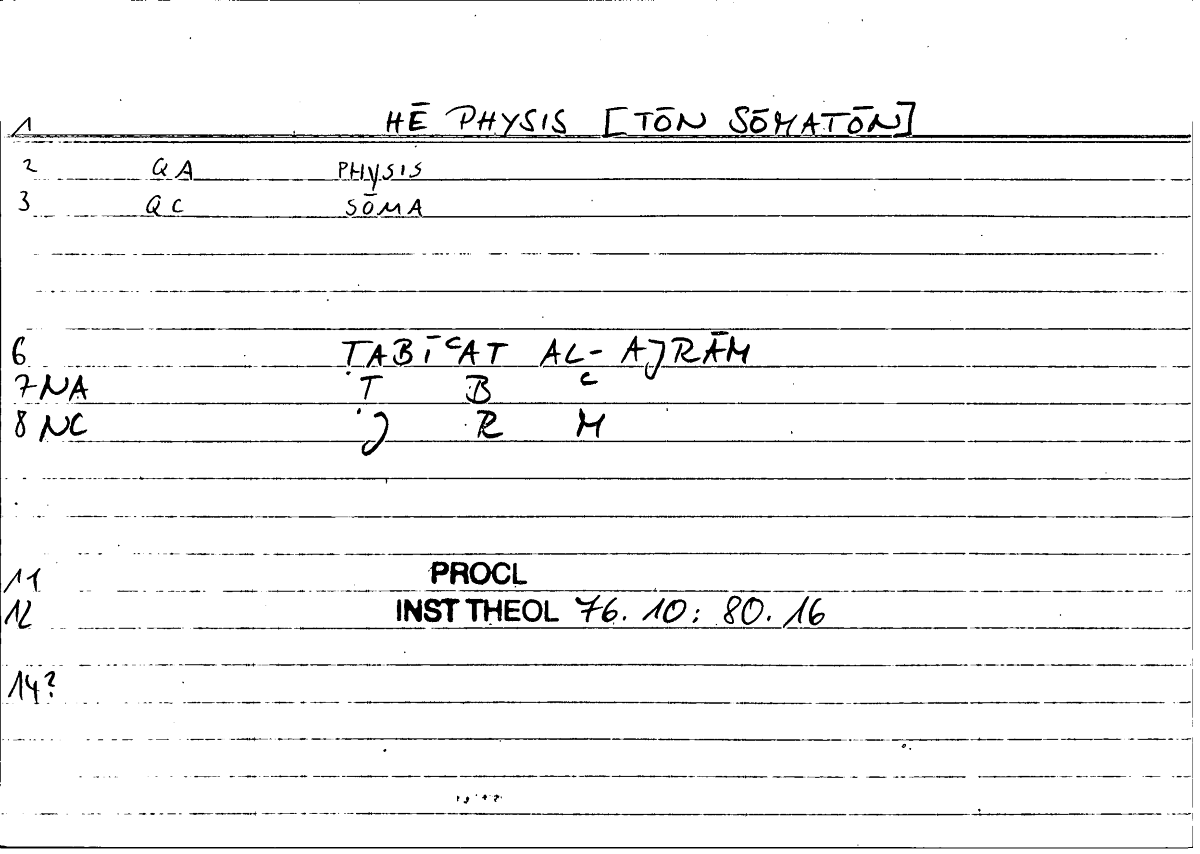 1 HĒ PHYSIS [TŌN SŌMATŌN]
2 QA PHYSIS
3 QC SŌMA
6 ṬABĪᶜAT AL-AJRĀM
7 NA Ṭ B ᶜ
8 NC J R M
11 PROCL
12 INST THEOL 76. 10: 80. 16
14?